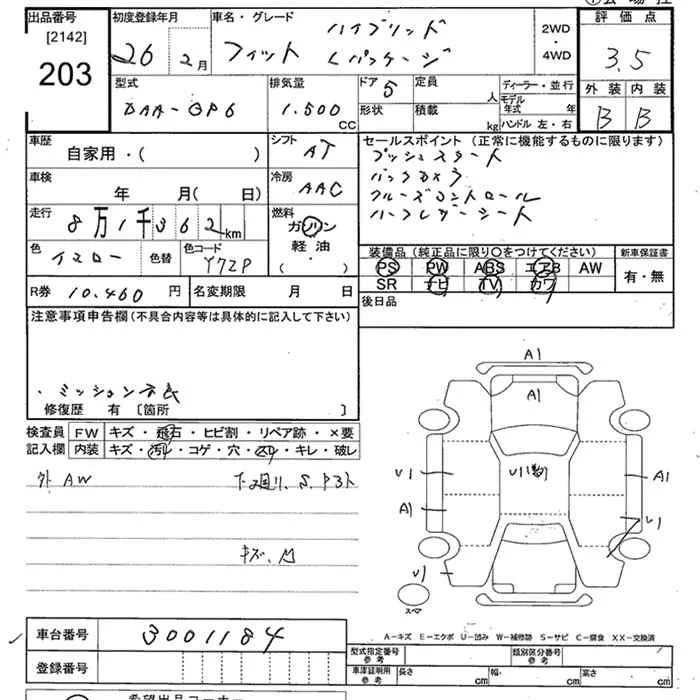 出品番号 初度登録年月 車名・グレード ハイブリッド 評価点
[2142] 26 2月 フィット Lパッケージ 2WD・4WD 3.5
203
型式 排気量 ドア 5 定員 人 ディーラー・並行 外装 内装
DAA-GP6 1.500 CC 形状 積載 kg モデル年式 年 B B
ハンドル 左・右
車歴 シフト AT セールスポイント(正常に機能するものに限ります)
自家用・( ) プッシュスタート
車検 冷房 AAC バックカメラ
年 月( 日) クルーズコントロール
走行 8万1千362km 燃料 ガソリン 軽油・( ) ハーフレザーシート
色 イエロー 色替 色コード Y72P 装備品(純正品に限り○をつけてください) 新車保証書
PS PW ABS エアB AW 有・無
R券 10.460円 名変期限 月 日 SR ナビ TV カワ
注意事項申告欄(不具合内容等は具体的に記入して下さい) 後日品
・ミッション
修復歴 有 [箇所 ]
検査員 FW キズ・飛石・ヒビ割・リペア跡・×要
記入欄 内装 キズ・汚れ・コゲ・穴・スレ・キレ・破レ
外 AW 下廻り、S.
キズ、
A1
A1
U1 U1 A1
A1
U1
U1
スペア
A-キズ E-エクボ U-凹み W-補修跡 S-サビ C-腐食 XX-交換済
車台番号 3001184
型式指定番号 参考 類別区分番号 参考
登録番号 車庫証明用 参考 長さ cm 幅 cm 高さ cm